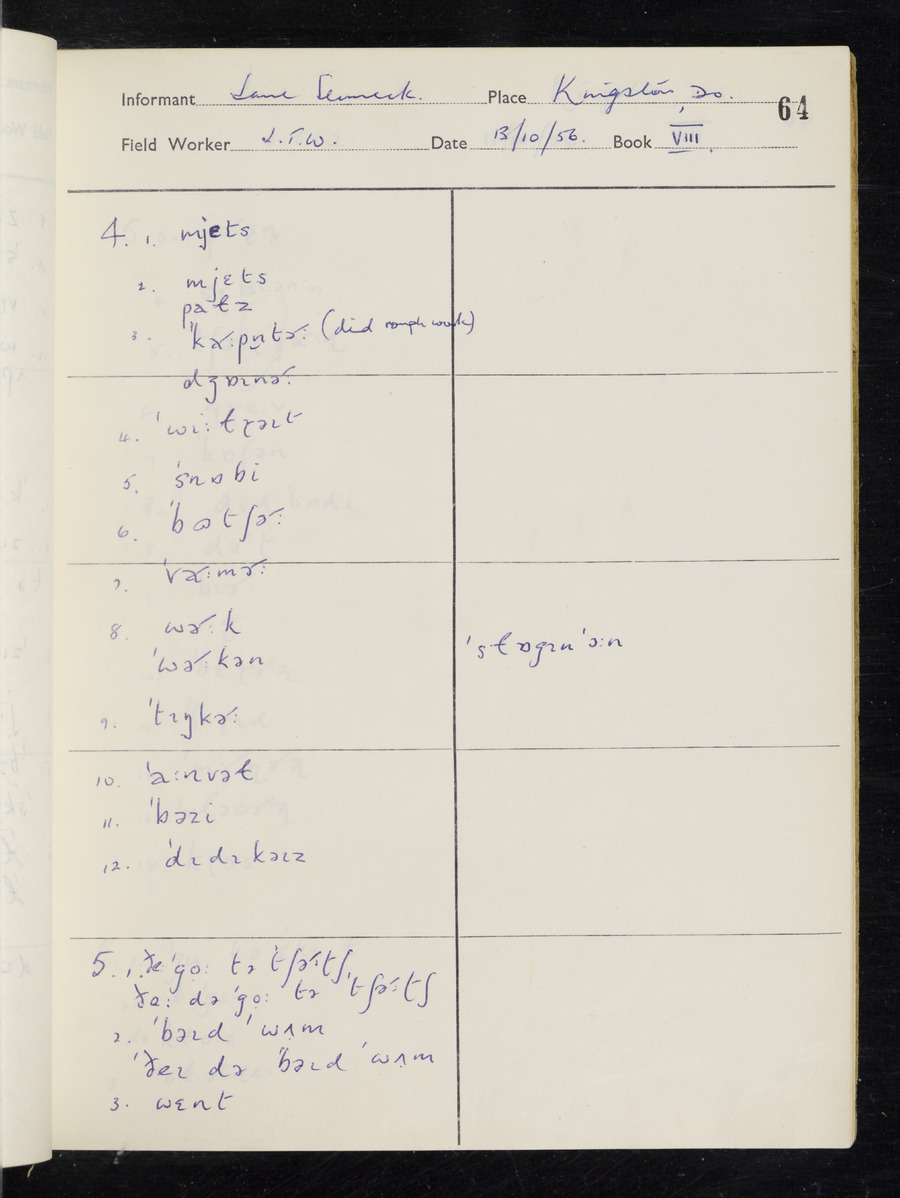 Informant Place Kingston, Do. 64
Field Worker Date 13/10/56. Book VIII.
4. 1. mjɛts
2. mjɛts
patz
3. ˈkɚ:pn̩tɚ: (did rough work)
dʒɒɪnɚ:
4. ˈwi:ɫɹəɪt
5. ˈsnɒbi
6. ˈbɷtʃɚ:
7. ˈva˞:mɚ:
8. wɚ:k
ˈwɚ:kən
ˈstɒgɪnˈɔ:n
9. ˈtɪŋkɚ:
10. ˈa:nvəɫ
11. ˈbəzi
12. ˈdɪdɪkəɪz
5. 1. ðe ˈgo: tə ˈtʃɚ:tʃ,
ðe: də ˈgo: tə ˈtʃɚ:tʃ
2. ˈbəɪd ˈwʌm
ˈðeɪ də ˈbəɪd ˈwʌm
3. wɛnt